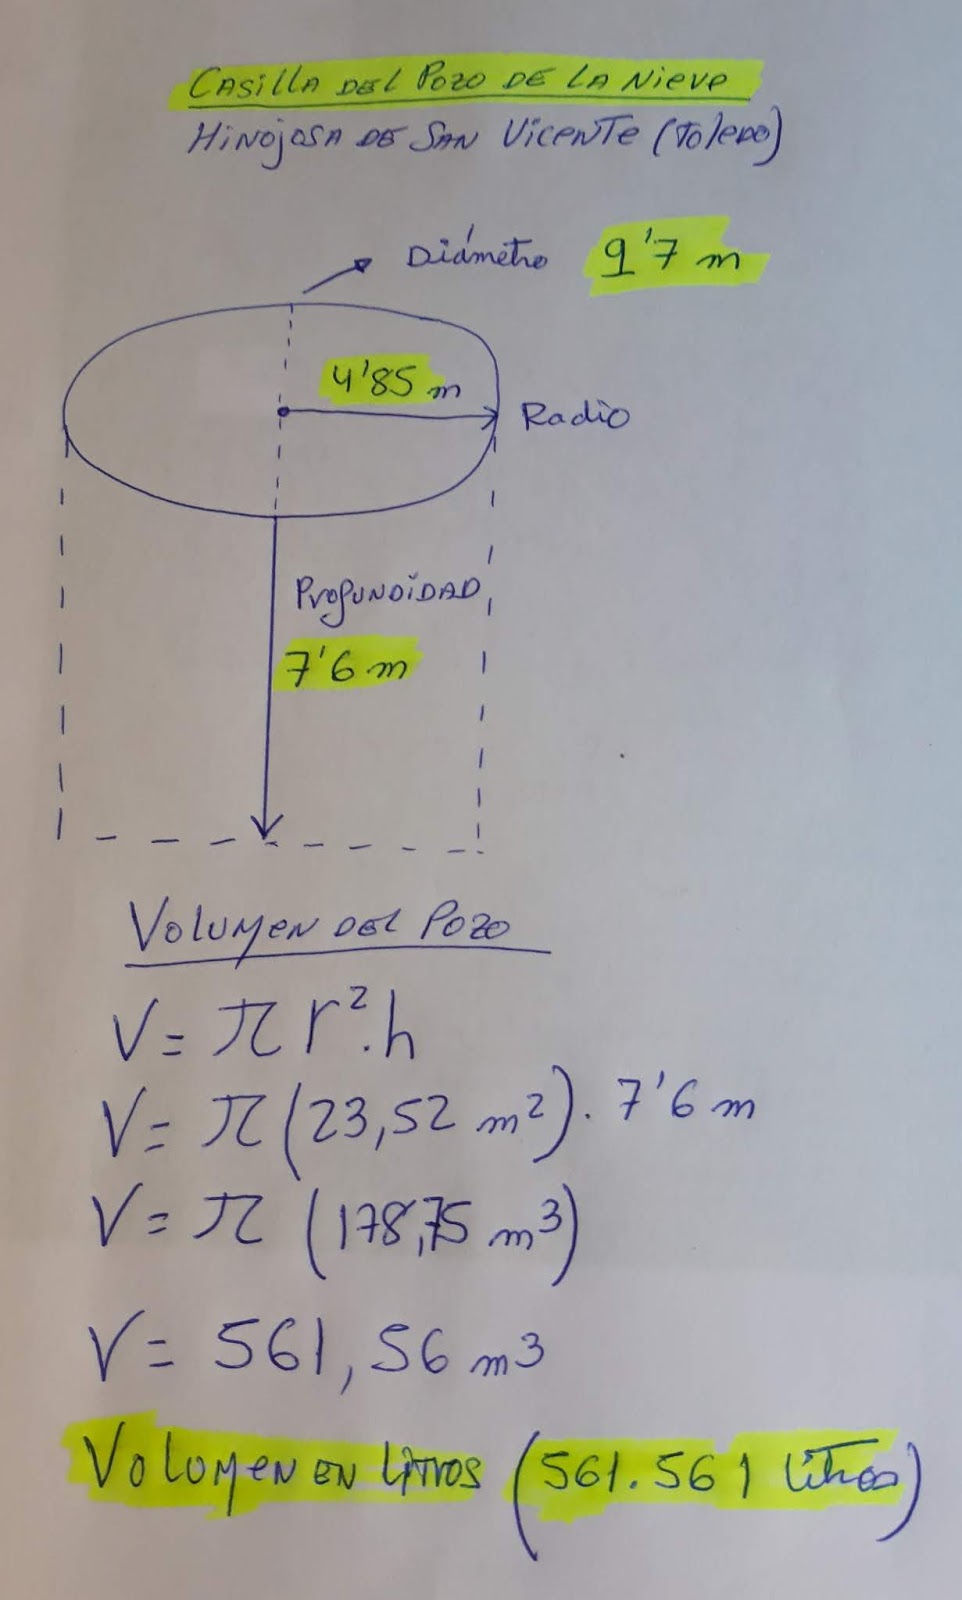 CASILLA DEL POZO DE LA NIEVE
HINOJOSA DE SAN VICENTE (TOLEDO)
Diámetro 9'7 m
4'85 m
Radio
PROFUNDIDAD
7'6 m
VOLUMEN DEL POZO
V = π r².h
V = π (23,52 m²). 7'6 m
V = π (178,75 m³)
V = 561,56 m³
VOLUMEN EN LITROS (561.561 litros)